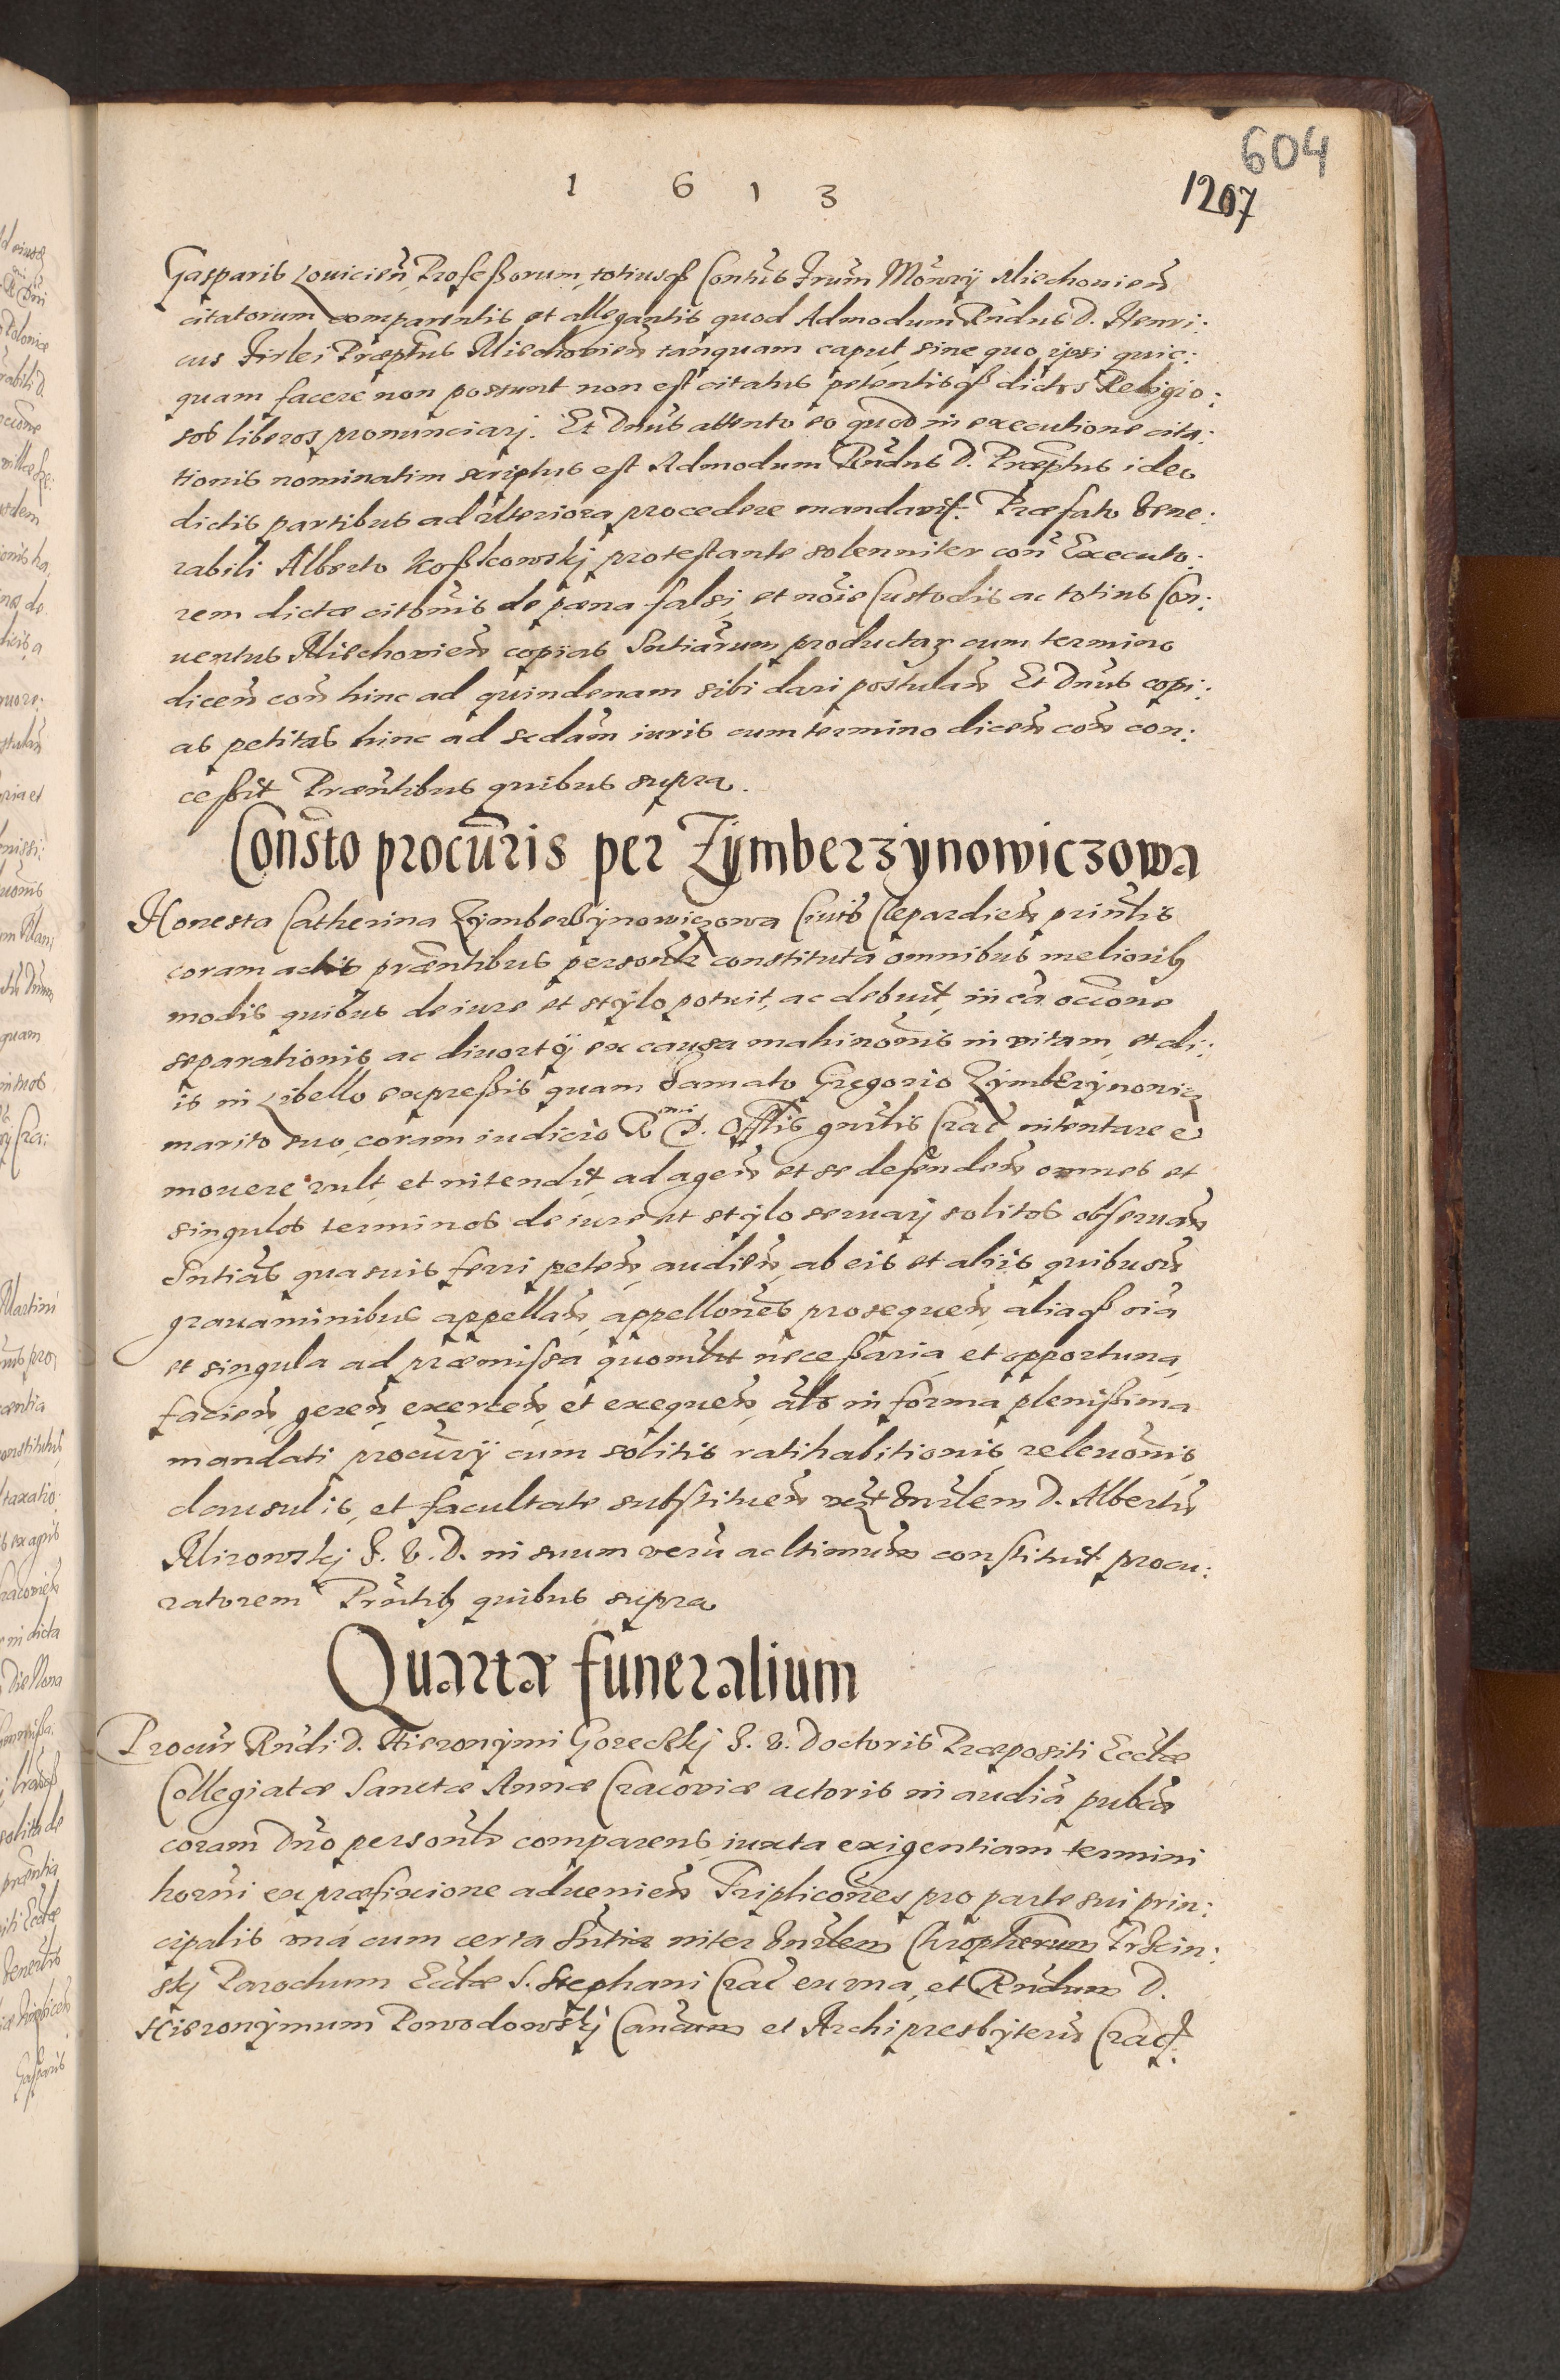 604
1 6 1 3
1207
Gasparis Louicień Professorum, totiusqß Contus Frum Monrÿ Miechouień
citatorum comparentis et allegantis quod Admodum Rndus D. Henri:
cus Firlei Præptus Miechouień tanquam caput, sine quo ipsi quic:
quam facere non possunt non est citatus petentisqß dictos Religio:
sos liberos pronunciarj. Et Dnus attento eo quod in executione cita:
tionis nominatim scriptus est Admodum Rndus D. Præptus ideo
dictis partibus ad ulteriora procedere mandavit. Præfato Vene:
rabili Alberto Koszkowskj protestante solenniter con Executo:
rem dictæ citonis de pæna falsi, et noie Custodis ac totius Con:
uentus Miechouień copias Sntiarum productar cum termino
diceń coń hinc ad quindenam sibi dari postulań Et Dnus copi:
as petitas hinc ad scdam iuris cum termino diceń coń con:
cessit Præntibus quibus supra.
Consto procuris per Zymberzynowiczowa
Honesta Catherina Zymberzynowiczowa Ciuis Clepardień prińlis
coram actis præntibus personlr constituta omnibus melioribꝫ
modis quibus de iure et stÿlo potuit, ac debuit, in ca occone
separationis ac diuortÿ ex causa machinonis in vitam, et ali:
is in Libello expressis quam Famato Gregorio Zymberzynowicz
marito suo, coram iudicio R D. Offlis gnrlis Crac intentare e
mouere vult, et intendit, ad ageń et se defendeń omnes et
singulos terminos de iure et stÿlo seruarj solitos obseruań
Sntias quasuis ferri peteń, audień, ab eis et aliis quibusu
grauaminibus appellań, appellones prosequeń, aliaqß oia
et singula ad præmissa quomlt necessaria, et opportuna,
facień, gereń, exerceń, et exequeń, als in forma plenissima
mandati procurÿ cum solitis ratihabitionis, releuonis,
clausulis, et facultate substitueń Vnrlem D. Albertu
Mirowskj I. V. D. in suum veru ac ltimum constituit procu:
ratorem Prntibꝫ quibus supra
Quartæ funeralium
Procur Rndi D. Hieronymi Goreckj I. V. Doctoris Præpositi Ecclæ
Collegiatæ Sanctæ Annæ Cracoviæ actoris in audia publca
coram Dno personlr comparens, iuxta exigentiam termini
horni ex præfixione aduenień Triplicones pro parte sui prin:
cipalis una cum certa Sntia inter Vnrlem Chrophorum Trzcin:
skj Parochum Ecclæ S. Stephani Crac ex una, et Rndum D.
Hieronymum Powodowskj Cancum et Archipresbyteru Crac